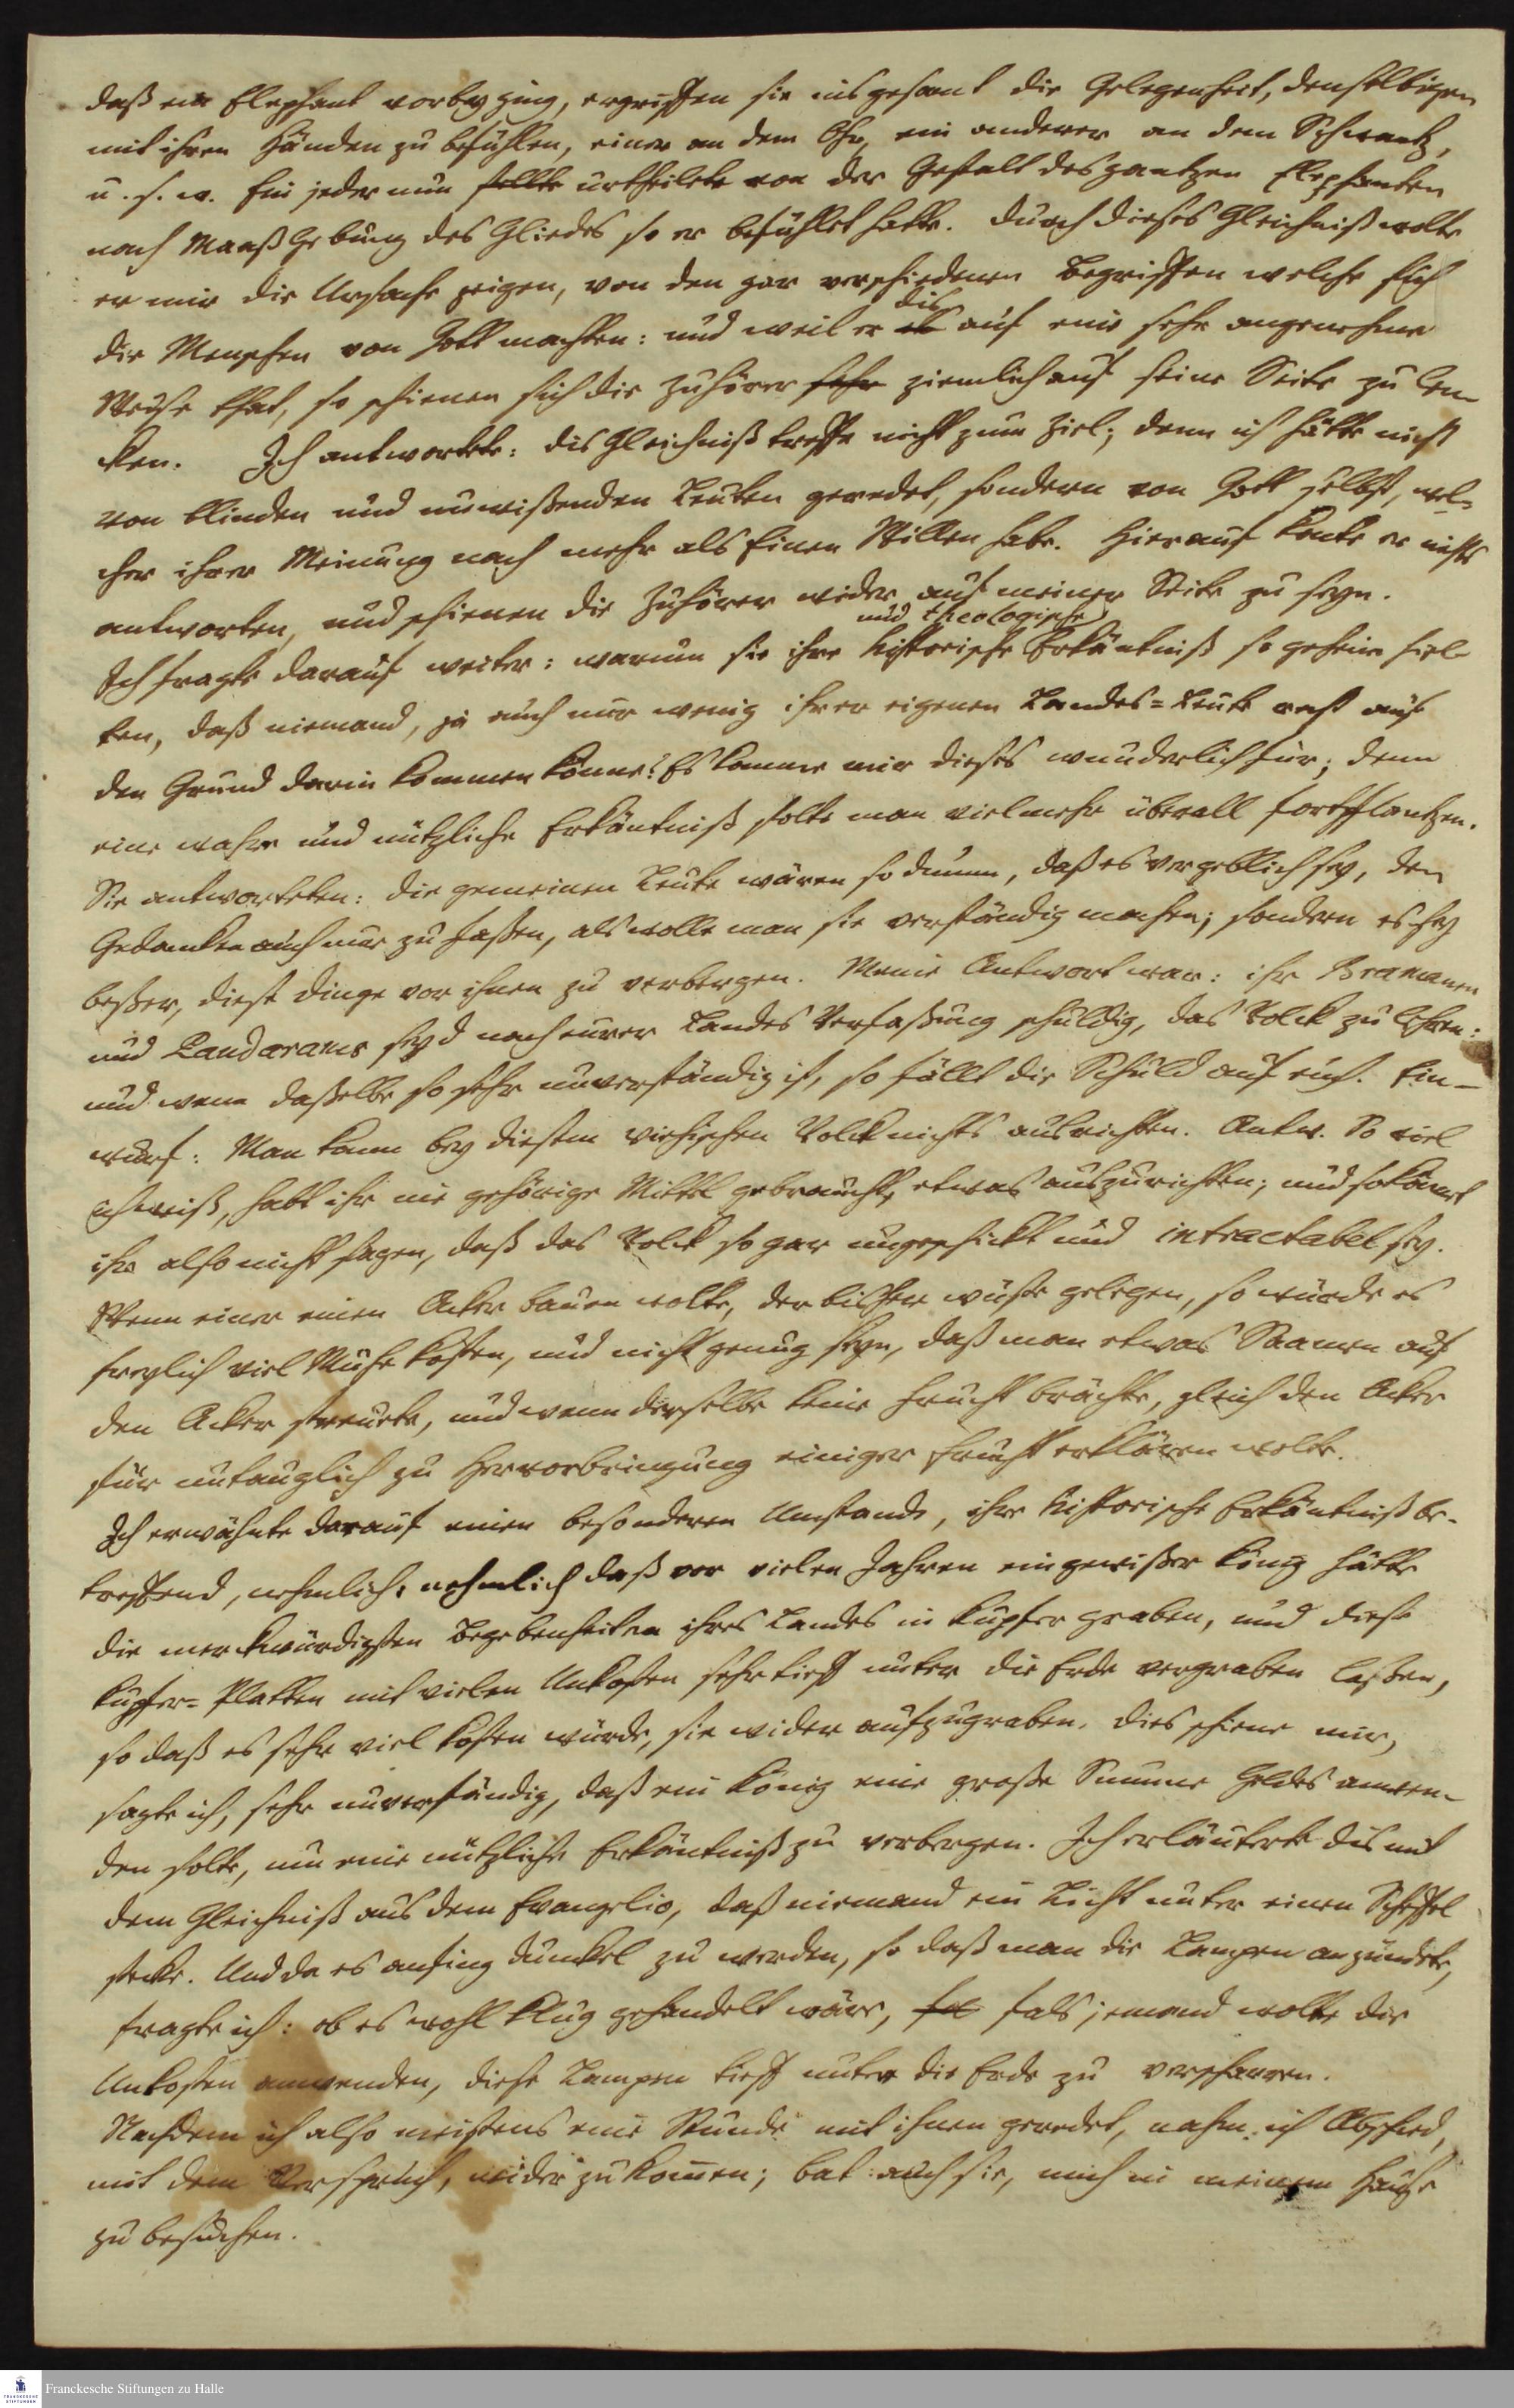 daß ein Elephant vorbey ging, ergriffen sie insgesamt die Gelegenheit, denselbigen
mit ihren Händen zu befühlen, einer an dem Ohr, ein anderer an dem Schwantz,
u. s. w. Ein jeder nun fellte urtheilete von der Gestalt des gantzen Elephanten
nach Maaß Gebung des Gliedes so er befühlet hatte. Durch dieses Gleichniß wolte
er mir die Ursache zeigen, von den gar verschiedenen Begriffen welche sich
die Menschen von Gott machten: und weil er es dis auf eine sehr angenehme
Weise that, so schienen sich die Zuhörer sehr ziemlich auf seine Seite zu len-
cken. Ich antwortete: dis Gleichniß treffe nicht zum Ziel; denn ich hätte nicht
von blinden und unwißenden Leuten geredet, sondern von Gott selbst, wel-
cher ihrer Meinung nach mehr als Einen Willen habe. Hierauf konte er nichts
antworten, und schienen die Zuhörer wider auf meiner Seite zu seyn.
Ich fragte darauf weiter: warum sie ihre historische und theologische Erkäntniß so geheim hiel-
ten, daß niemand, ja auch nur wenig ihrer eigenen Landes-Leute recht auf
den Grund darin kommen könne? Es komme mir dieses wunderlich für; denn
eine wahre und nützliche Erkäntniß solte man vielmehr überall fortpflantzen.
Sie antworteten: die gemeinen Leute wären so dumm, daß es vergeblich sey, den
Gedancken auch nur zu faßen, als wolle man sie verständig machen; sondern es sey
beßer, diese Dinge vor ihnen zu verbergen. Meine Antwort war: ihr Bramanen
und Pandarams seyd nach eurer Landes Verfaßung schuldig, das Volck zu lehren:
und wenn daßelbe so sehr unverständig ist, so fällt die Schuld auf euch. Ein-
wurf: Man kann bey diesem viehischen Volck nichts ausrichten. Antw. So viel
ich weiß, habt ihr nie gehörige Mittel gebraucht, etwas auszurichten; und so könnet
ihr also nicht sagen, daß das Volck so gar ungeschickt und intractabel sey.
Wenn einer einen Acker bauen wolte, der bisher wüste gelegen, so würde es
freylich viel Mühe kosten, und nicht genug seyn, daß man etwas Saamen auf
den Acker streuete, und wenn derselbe keine Frucht brächte, gleich den Acker
für untauglich zu Hervorbringung einiger Frucht erklären wolte.
Ich erwähnte darauf einen besonderen Umstand, ihre historische Erkäntniß be-
treffend, nehmlich, nehmlich daß vor vielen Jahren ein gewißer König hätte
die merckwürdigsten Begebenheiten ihres Landes in Kupfer graben, und diese
Kupfer-Platten mit vielen Unkosten sehr tieff unter die Erde vergraben laßen,
so daß es sehr viel kosten würde, sie wider aufzugraben. Dies schiene mir,
sagte ich, sehr unverständig, daß ein König eine große Summe Geldes anwen-
den solte, um eine nützliche Erkäntniß zu verbergen. Ich erläuterte dis mit
dem Gleichniß aus dem Evangelio, daß niemand ein Licht unter einen Scheffel
stecke. Und da es anfing dunkel zu werden, so daß man die Lampen anzündete,
fragte ich: ob es wohl klug gehandelt wäre, fal fals jemand wolte die
Unkosten anwenden, diese Lampen tieff unter die Erde zu verscharren.
Nachdem ich also meistens eine Stunde mit ihnen geredet, nahm ich Abschied,
mit dem Verspruch, wider zu kommen; bat auch sie, mich in meinem Hause
zu besuchen.
Franckesche Stiftungen zu Halle
FRANCKESCHE STIFTUNGEN